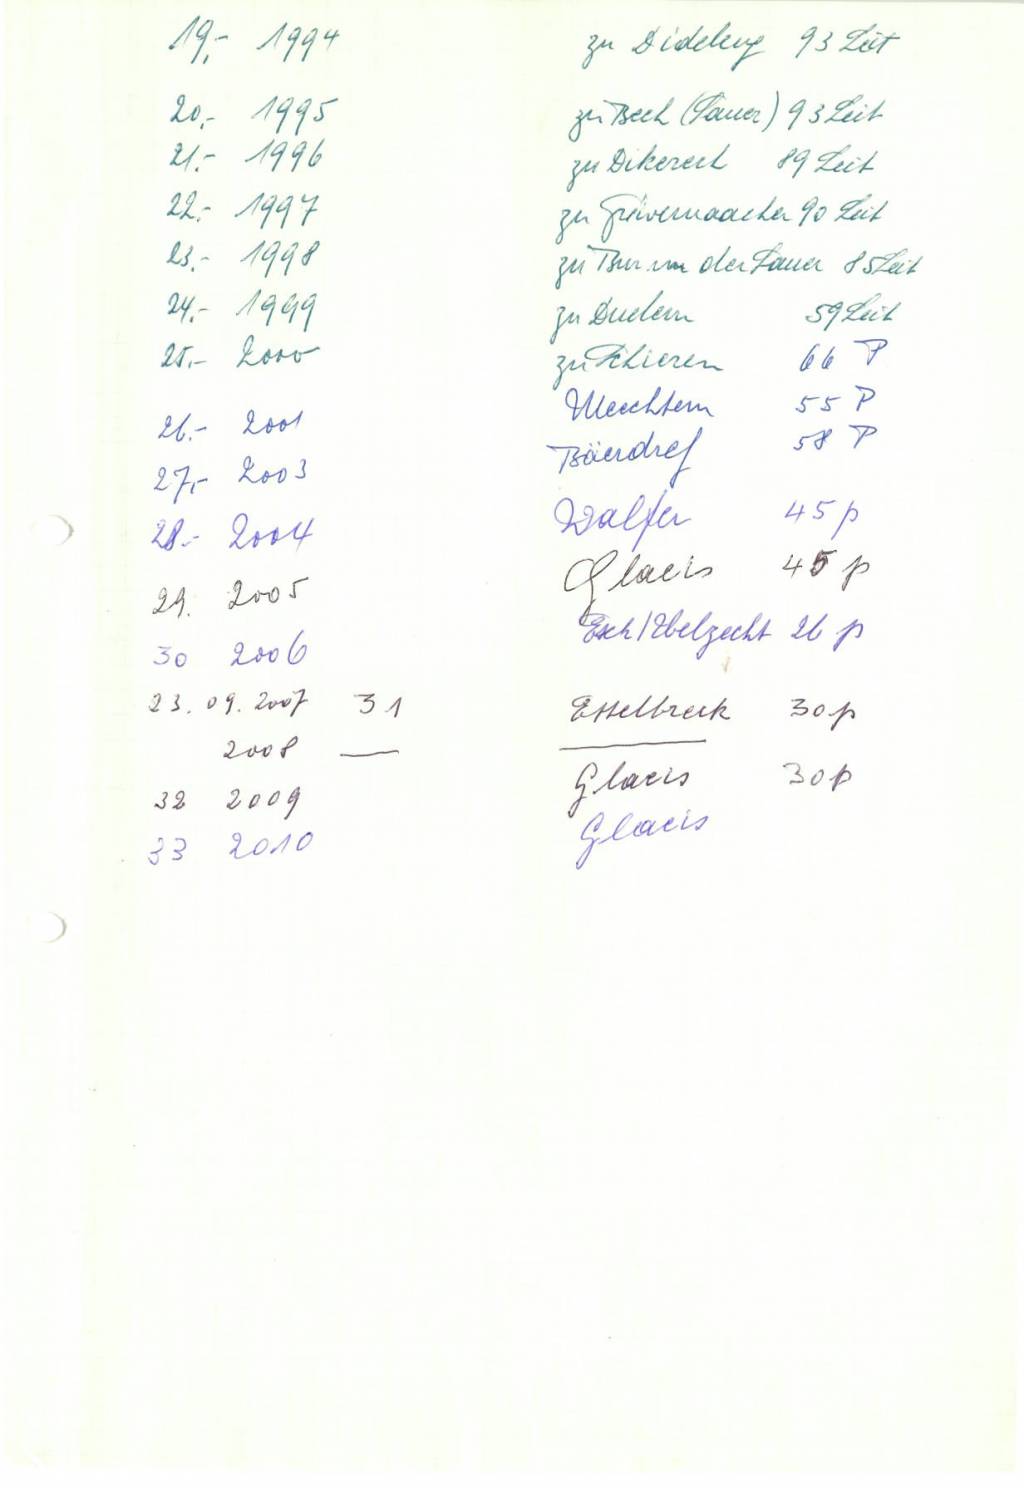 19,- 1994 zu Dideleng 93 Leit
20,- 1995 zu Bech (Sauer) 93 Leit
21.- 1996 zu Dikerech 89 Leit
22.- 1997 zu Grevemaacher 90 Leit
23.- 1998 zu Bur un der Sauer 85 Leit
24.- 1999 zu Duelem 59 Leit
25.- 2000 zu Schieren 66 P
26.- 2001 Meechtem 55 P
27,- 2003 Bäerdref 58 P
28.- 2004 Walfer 45 p
29. 2005 Glacis 45 p
30 2006 Esch/Uelzecht 26 p
23.09.2007 31 Esselbreck 30 p
2008 —
32 2009 Glacis 30 p
33 2010 Glacis